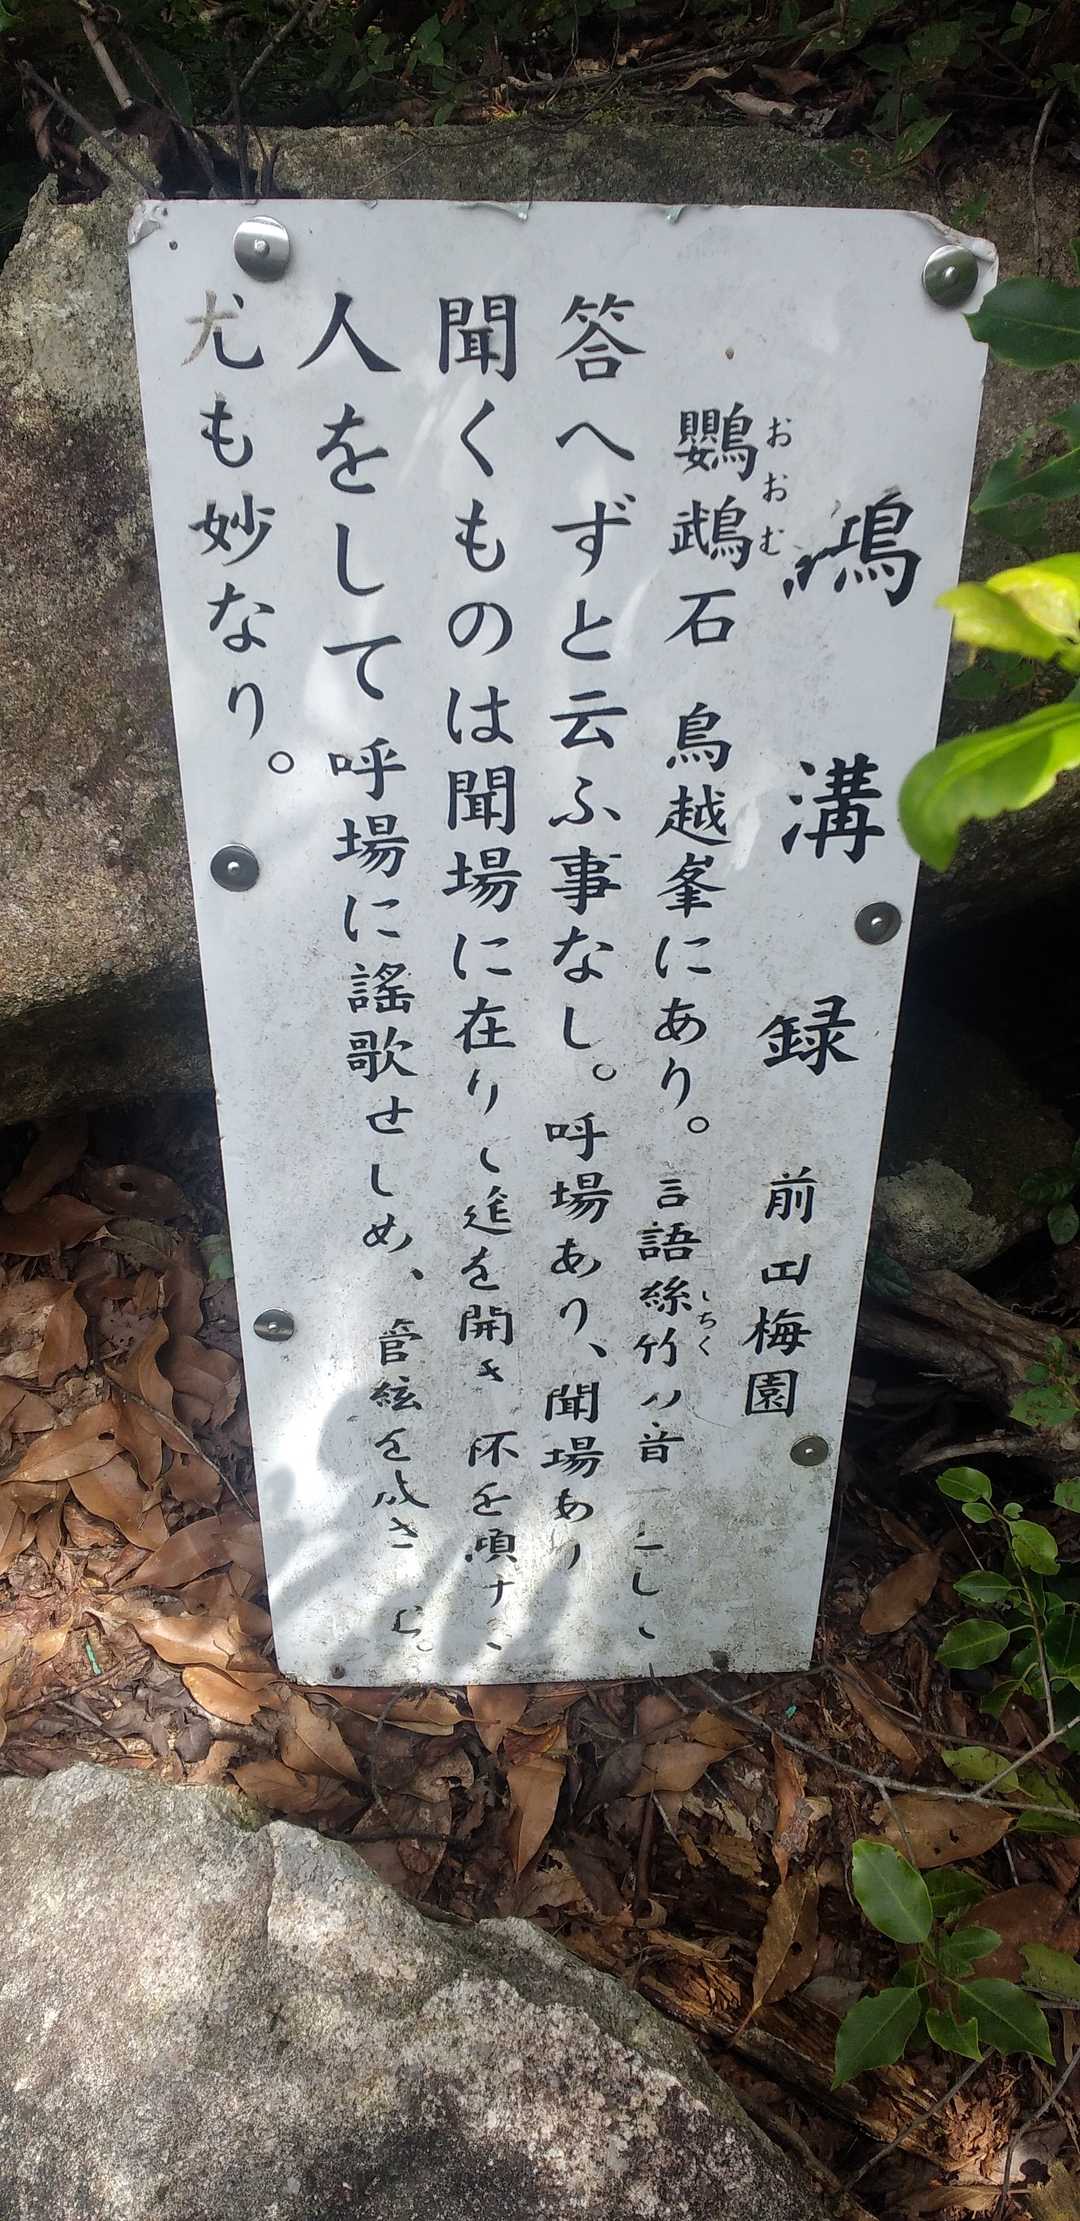 鴻溝録 前田梅園
鸚鵡石 鳥越峯にあり。言語絲竹ノ音一としヽ
おおむ
しちく
答へずと云ふ事なし。呼場あり、聞場あり
聞くものは聞場に在りヽ筵を開き 杯を傾けヽ
人をして呼場に謡歌せしめ、管絃を成さしむ。
尤も妙なり。